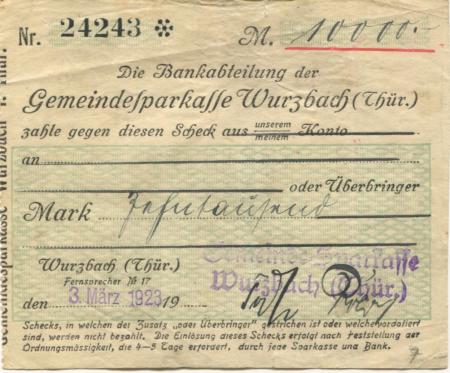 Nr. 24243 ❇ M. 10000.-
Die Bankabteilung der
Gemeindesparkasse Wurzbach (Thür.)
zahle gegen diesen Scheck aus unserem meinem Konto
an
oder Überbringer
Mark Zehntausend
Gemeinde Sparkasse
Wurzbach (Thür.)
Wurzbach (Thür.)
Fernsprecher № 17
den 3. März 1923 19
Schecks, in welchen der Zusatz „oder Überbringer" gestrichen ist oder welche vordatiert
sind, werden nicht bezahlt. Die Einlösung dieses Schecks erfolgt nach Feststellung der
Ordnungsmässigkeit, die 4-5 Tage erfordert, durch jede Sparkasse und Bank.
Gemeindesparkasse Wurzbach i. Thür.